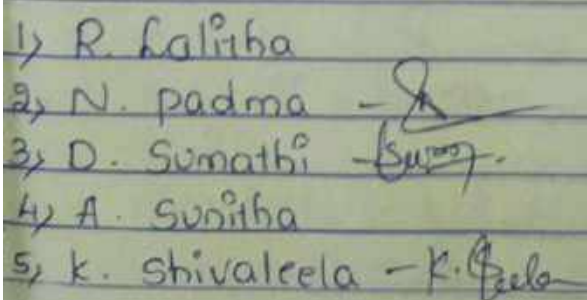 1) R. Lalitha
2) N. Padma -
3) D. Sumathi -
4) A. Sunitha
5) K. Shivaleela - K.